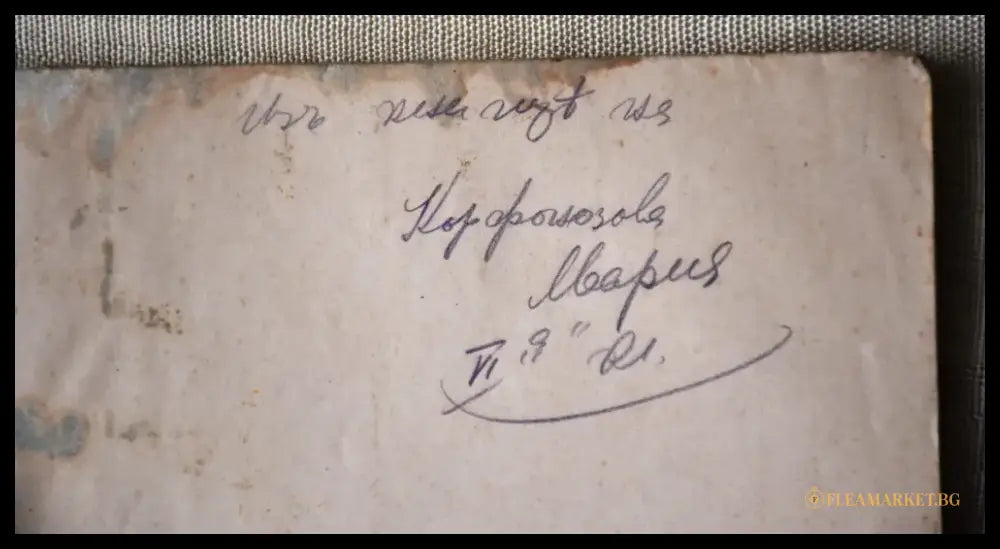 Изъ книгитѣ на
Корфонозова
Мария
VI "Я" кл.
FLEAMARKET.BG